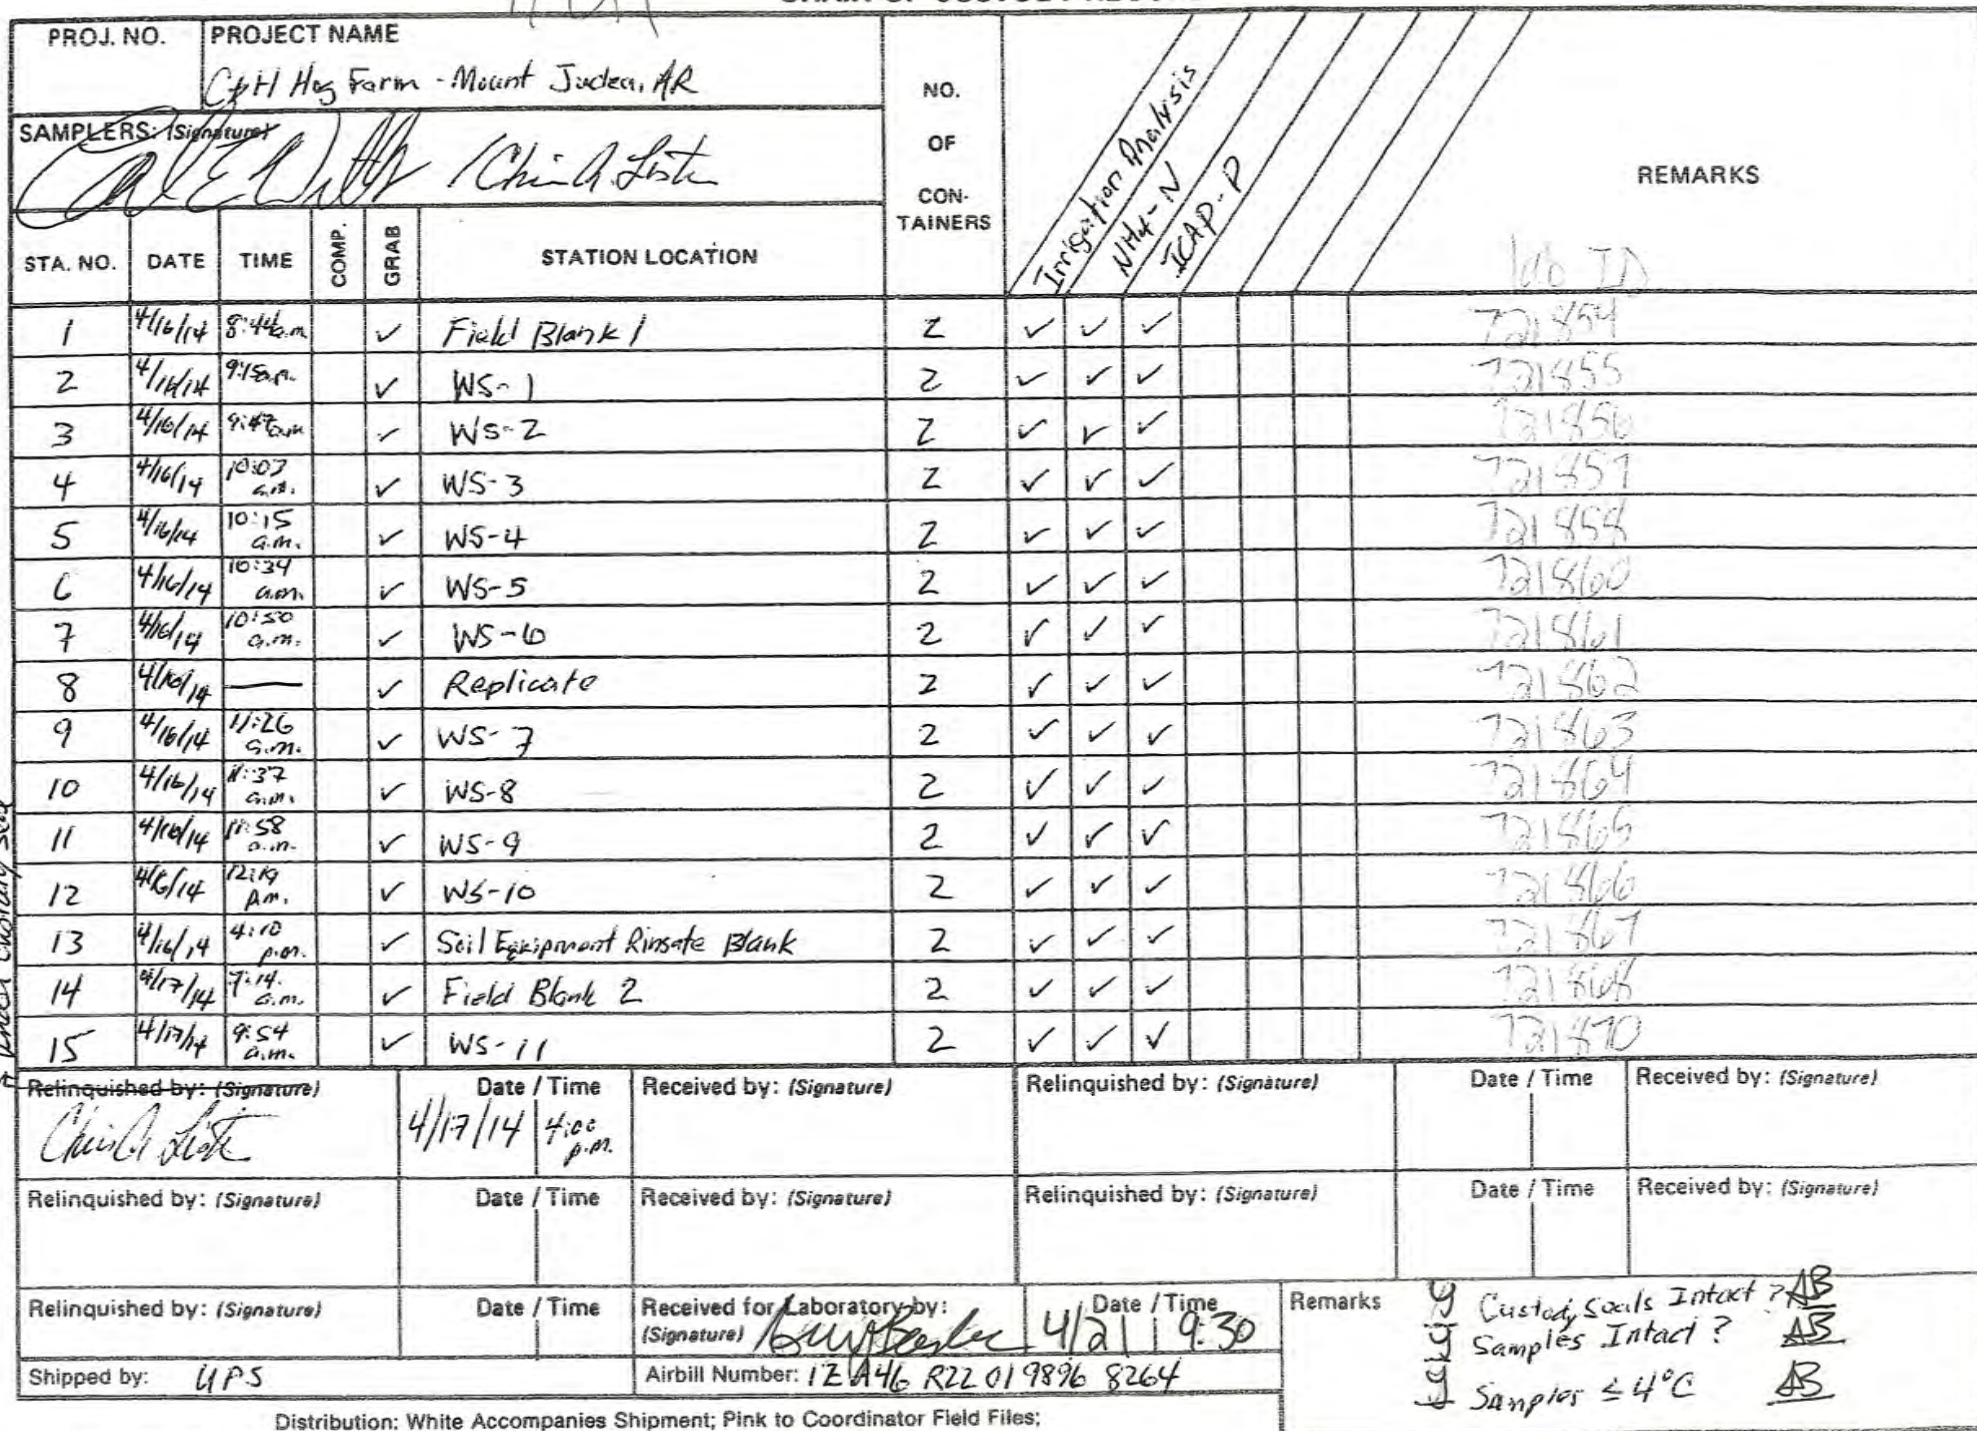 PROJ. NO. PROJECT NAME
C&H Hog Farm - Mount Judea, AR
SAMPLERS: (Signature)
NO. OF CON-TAINERS
Irrigation Analysis
NH4-N
ICAP-P
REMARKS
lab ID
STA. NO. DATE TIME COMP. GRAB STATION LOCATION
1 4/16/14 8:44 a.m ✓ Field Blank 1 2 ✓ ✓ ✓ 721854
2 4/16/14 9:15 a.m. ✓ WS-1 2 ✓ ✓ ✓ 721855
3 4/16/14 9:47 a.m ✓ WS-2 2 ✓ ✓ ✓ 721856
4 4/16/14 10:03 a.m. ✓ WS-3 2 ✓ ✓ ✓ 721857
5 4/16/14 10:15 a.m. ✓ WS-4 2 ✓ ✓ ✓ 721858
6 4/16/14 10:34 a.m. ✓ WS-5 2 ✓ ✓ ✓ 721860
7 4/16/14 10:50 a.m. ✓ WS-6 2 ✓ ✓ ✓ 721861
8 4/16/14 — ✓ Replicate 2 ✓ ✓ ✓ 721862
9 4/16/14 11:26 a.m. ✓ WS-7 2 ✓ ✓ ✓ 721863
10 4/16/14 11:37 a.m. ✓ WS-8 2 ✓ ✓ ✓ 721864
11 4/16/14 11:58 a.m. ✓ WS-9 2 ✓ ✓ ✓ 721865
12 4/16/14 12:19 p.m. ✓ WS-10 2 ✓ ✓ ✓ 721866
13 4/16/14 4:10 p.m. ✓ Soil Equipment Rinsate Blank 2 ✓ ✓ ✓ 721867
14 4/17/14 7:14 a.m. ✓ Field Blank 2 2 ✓ ✓ ✓ 721868
15 4/17/14 9:54 a.m. ✓ WS-11 2 ✓ ✓ ✓ 721870
Relinquished by: (Signature) Date / Time Received by: (Signature) Relinquished by: (Signature) Date / Time Received by: (Signature)
4/17/14 4:00 p.m.
Relinquished by: (Signature) Date / Time Received by: (Signature) Relinquished by: (Signature) Date / Time Received by: (Signature)
Relinquished by: (Signature) Date / Time Received for Laboratory by: (Signature) Date / Time 4/21 9:30 Remarks
y Custody Seals Intact? AB
y Samples Intact? AB
y Samples ≤ 4°C AB
Shipped by: UPS Airbill Number: 1Z A46 R22 01 9896 8264
Distribution: White Accompanies Shipment; Pink to Coordinator Field Files;